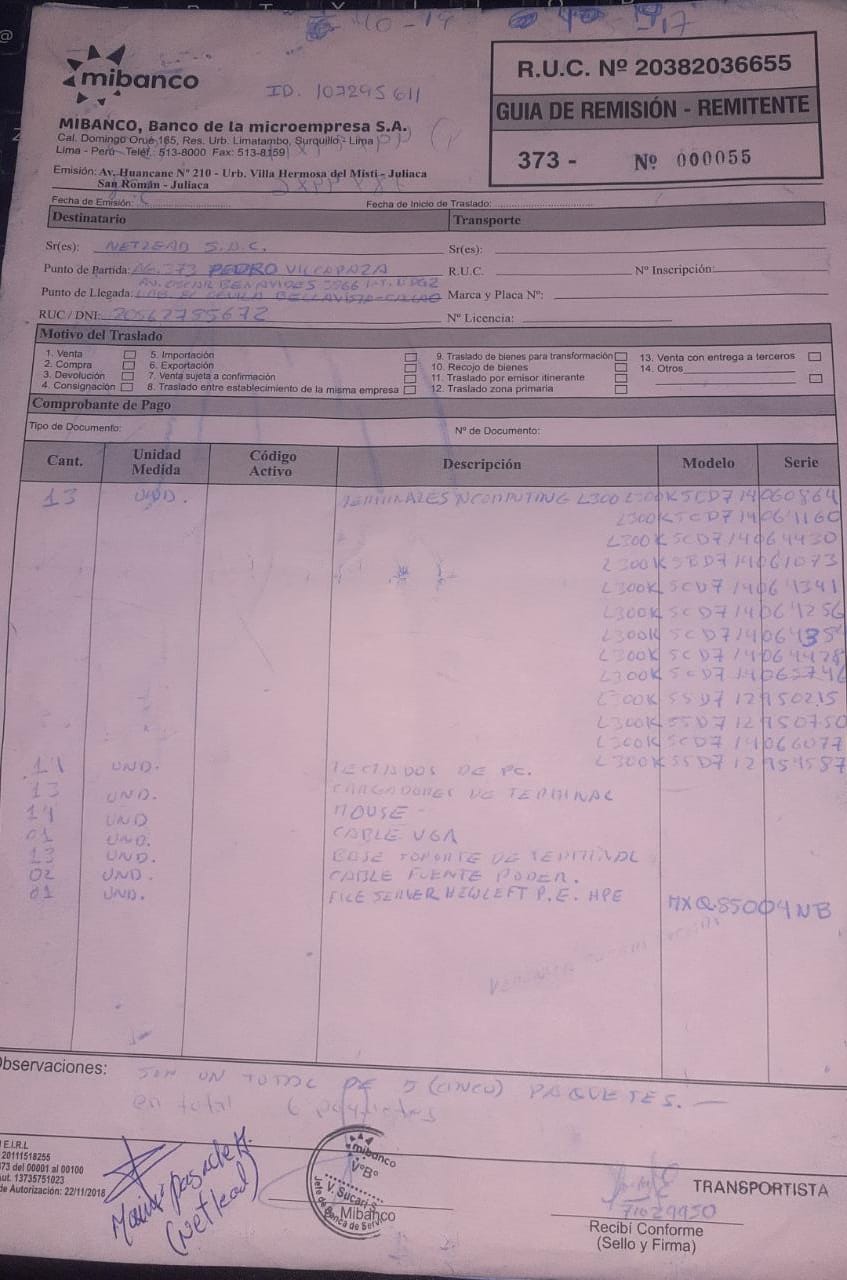 mibanco
ID. 107295611
MIBANCO, Banco de la microempresa S.A.
Cal. Domingo Orue 165, Res. Urb. Limatambo, Surquillo - Lima
Lima - Perú - Teléf.: 513-8000 Fax: 513-8159
Emisión: Av. Huancane Nº 210 - Urb. Villa Hermosa del Misti - Juliaca
San Román - Juliaca
R.U.C. Nº 20382036655
GUIA DE REMISIÓN - REMITENTE
373 - Nº 000055
Fecha de Emisión: Fecha de Inicio de Traslado:
Destinatario Transporte
Sr(es): NETLEAD S.A.C. Sr(es):
Punto de Partida: AG. 373 PEDRO VILCAPAZA R.U.C. Nº Inscripción:
AV. OSCAR BENAVIDES 3866
Punto de Llegada: BELLAVISTA-CALLAO Marca y Placa Nº:
RUC / DNI: 20562755672 Nº Licencia:
Motivo del Traslado
1. Venta 5. Importación 9. Traslado de bienes para transformación 13. Venta con entrega a terceros
2. Compra 6. Exportación 10. Recojo de bienes 14. Otros
3. Devolución 7. Venta sujeta a confirmación 11. Traslado por emisor itinerante
4. Consignación 8. Traslado entre establecimiento de la misma empresa 12. Traslado zona primaria
Comprobante de Pago
Tipo de Documento: Nº de Documento:
Cant. Unidad Medida Código Activo Descripción Modelo Serie
13 UND. TERMINALES NCOMPUTING L300 L300KSCD714060864
L300KSCD714061160
L300KSCD714064430
L300KSBD714061073
L300KSCD714061341
L300KSCD714061256
L300KSCD7140643
L300KSCD714064428
L300KSCD714065746
L300KSSD712950215
L300KSSD712950750
L300KSCD714066077
L300KSSD712951587
UND. TECLADOS DE PC.
13 UND. CARGADORES DE TERMINAL
14 UND MOUSE
01 UND. CABLE VGA
13 UND. BASE SOPORTE DE TERMINAL
02 UND. CABLE FUENTE PODER.
01 UND. FILE SERVER HEWLETT P.E. HPE MXQ85004NB
Observaciones: SON UN TOTAL DE 5 (CINCO) PAQUETES.
en total 6
E.I.R.L
20111518255
73 del 00001 al 00100
ut. 13735751023
de Autorización: 22/11/2018
(Netlead)
mibanco
VºBº
V. Sucari S.
Mibanco
Jefe de Banca de Serv
TRANSPORTISTA
71029950
Recibí Conforme
(Sello y Firma)